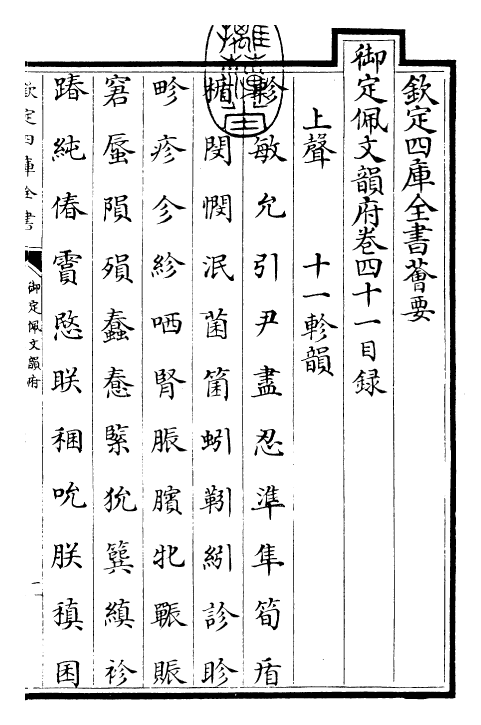 欽定四庫全書薈要
御定佩文韻府卷四十一目録
上聲　十一軫韻
軫敏允引尹盡忍準隼筍盾
楯閔憫泯菌箘蚓靷紖診眕
畛疹㐱紾哂腎脤臏牝辴賑
窘蜃隕殞蠢惷緊狁簨縝袗
踳純偆霣愍眹稇吮朕稹囷
欽定四庫全書
御定佩文韻府
一